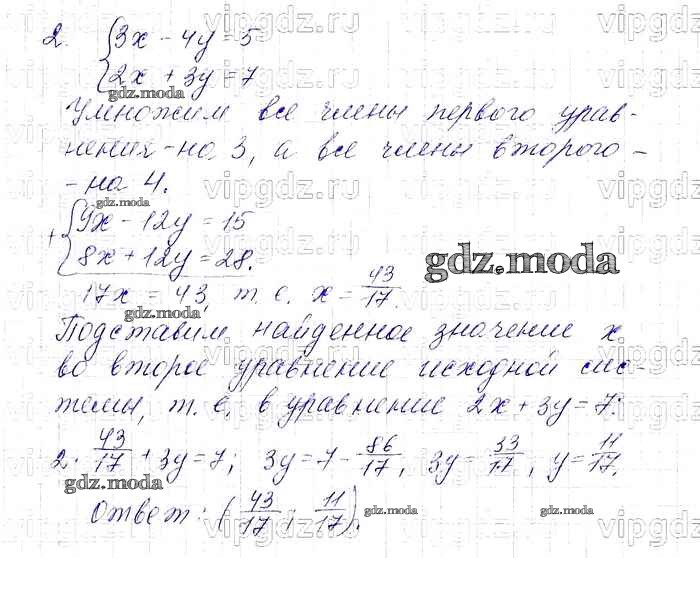 2. {3x - 4y = 5
{2x + 3y = 7
gdz.moda
Умножим все члены первого урав-
нения - на 3, а все члены второго -
- на 4.
gdz.moda
+ {9x - 12y = 15
{8x + 12y = 28.
gdz.moda
17x = 43, т. е. x = 43/17.
gdz.moda
Подставим найденное значение x
во второе уравнение исходной сис-
темы, т. е. в уравнение 2x + 3y = 7:
2 · 43/17 + 3y = 7; 3y = 7 - 86/17, 3y = 33/17, y = 11/17.
gdz.moda
Ответ: (43/17; 11/17).
gdz.moda
gdz.moda
vipgdz.ru